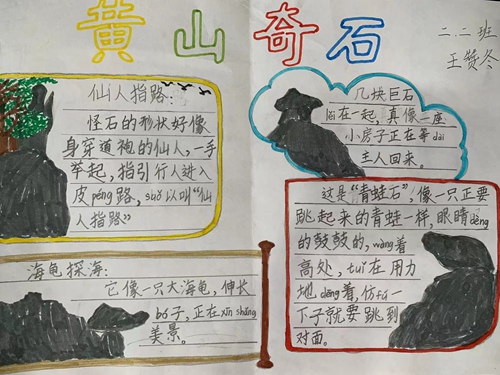 黄山奇石
二.二班
王赞冬
仙人指路:
怪石的形状好像
身穿道袍的仙人,一手
举起,指引行人进入
皮péng路,suǒ以叫“仙
人指路”
几块巨石
在一起,真像一座
小房子正在等dài
主人回来。
海龟探海:
它像一只大海龟,伸长
bó子,正在xīn shǎng
美景。
这是“青蛙石”,像一只正要
跳起来的青蛙一样,眼睛dèng
的鼓鼓的,wàng着
高处,tuǐ在用力
地dēng着,仿fú一
下子就要跳到
对面。